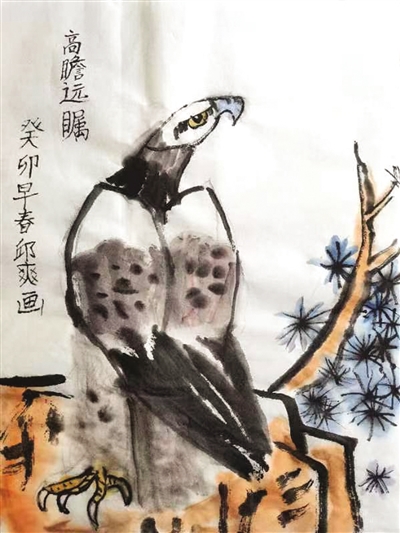 高瞻远瞩
癸卯早春邱爽画